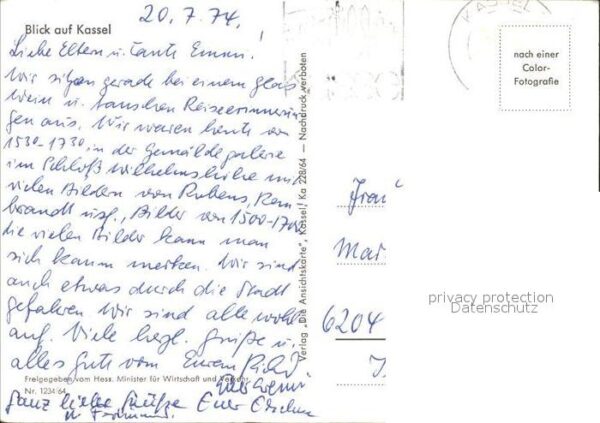 20.7.74.
Blick auf Kassel
Liebe Eltern u. Tante Emmi!
Wir sitzen gerade bei einem Glas
Wein u. tauschen Reiseerinnerun
gen aus. Wir waren heute von
1530-1730 in der Gemäldegalerie
im Schloß Wilhelmshöhe mit
vielen Bildern von Rubens, Rem
brandt usf., Bilder von 1500-1700
die vielen Bilder kann man
sich kaum merken. Wir sind
auch etwas durch die Stadt
gefahren Wir sind alle wohl
auf. Viele herzl. Grüße u.
alles Gute vom Euren
Freigegeben vom Hess. Minister für Wirtschaft und Verkehr
Nr. 1234/64
Ganz liebe Grüße Eure
Verlag „Die Ansichtskarte", Kassel, Ka 228/64 — Nachdruck verboten
KASSEL
nach einer
Color-
Fotografie
Frau
Mar
6204
privacy protection
Datenschutz